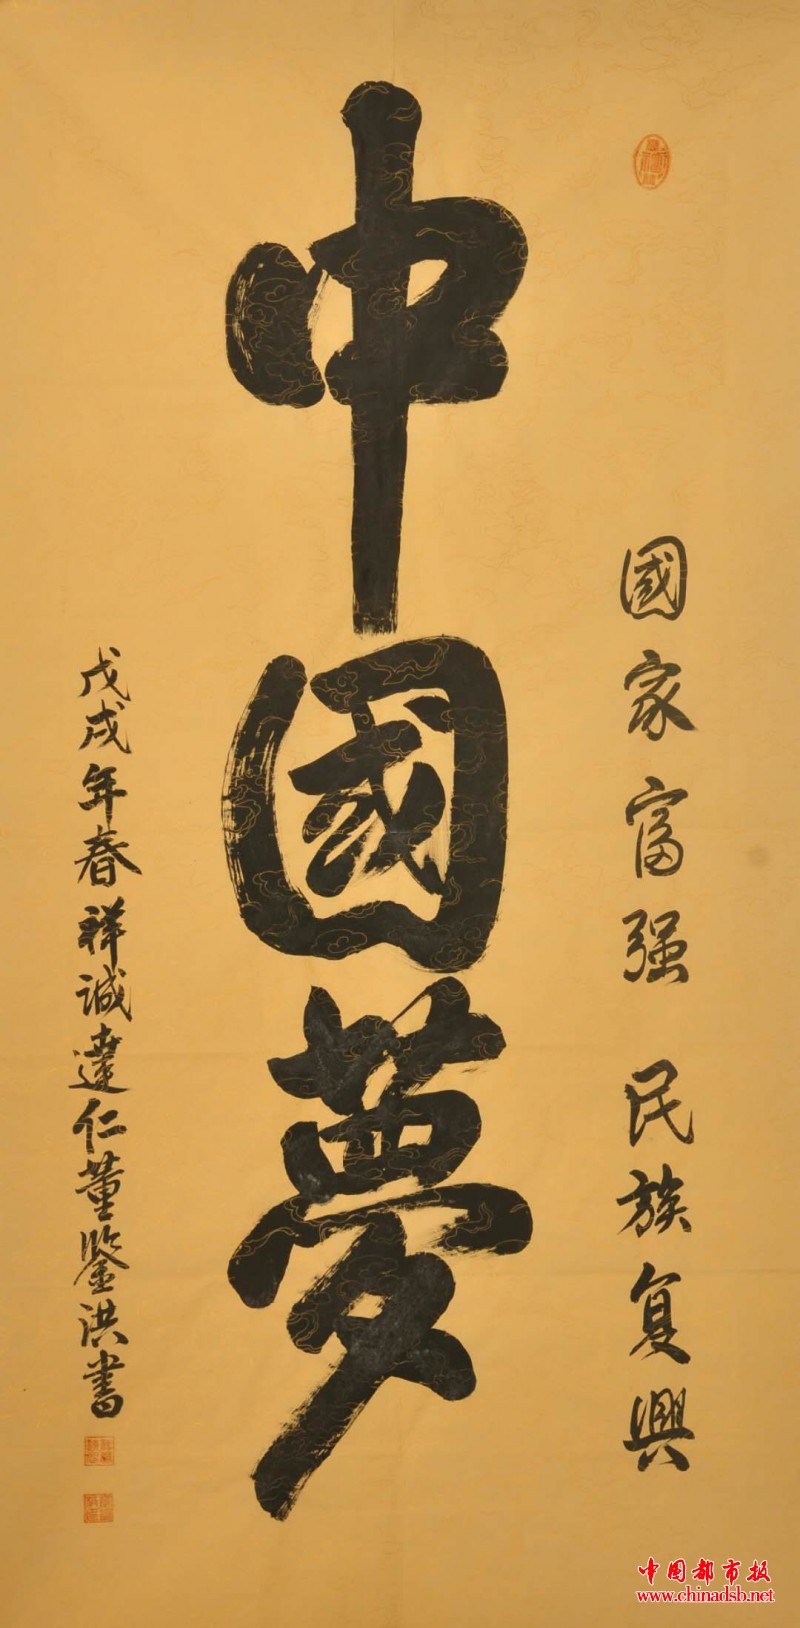 國家富强 民族复興
中國夢
戊戌年春祥誠達仁董鑒洪書
中国都市报
www.chinadsb.net